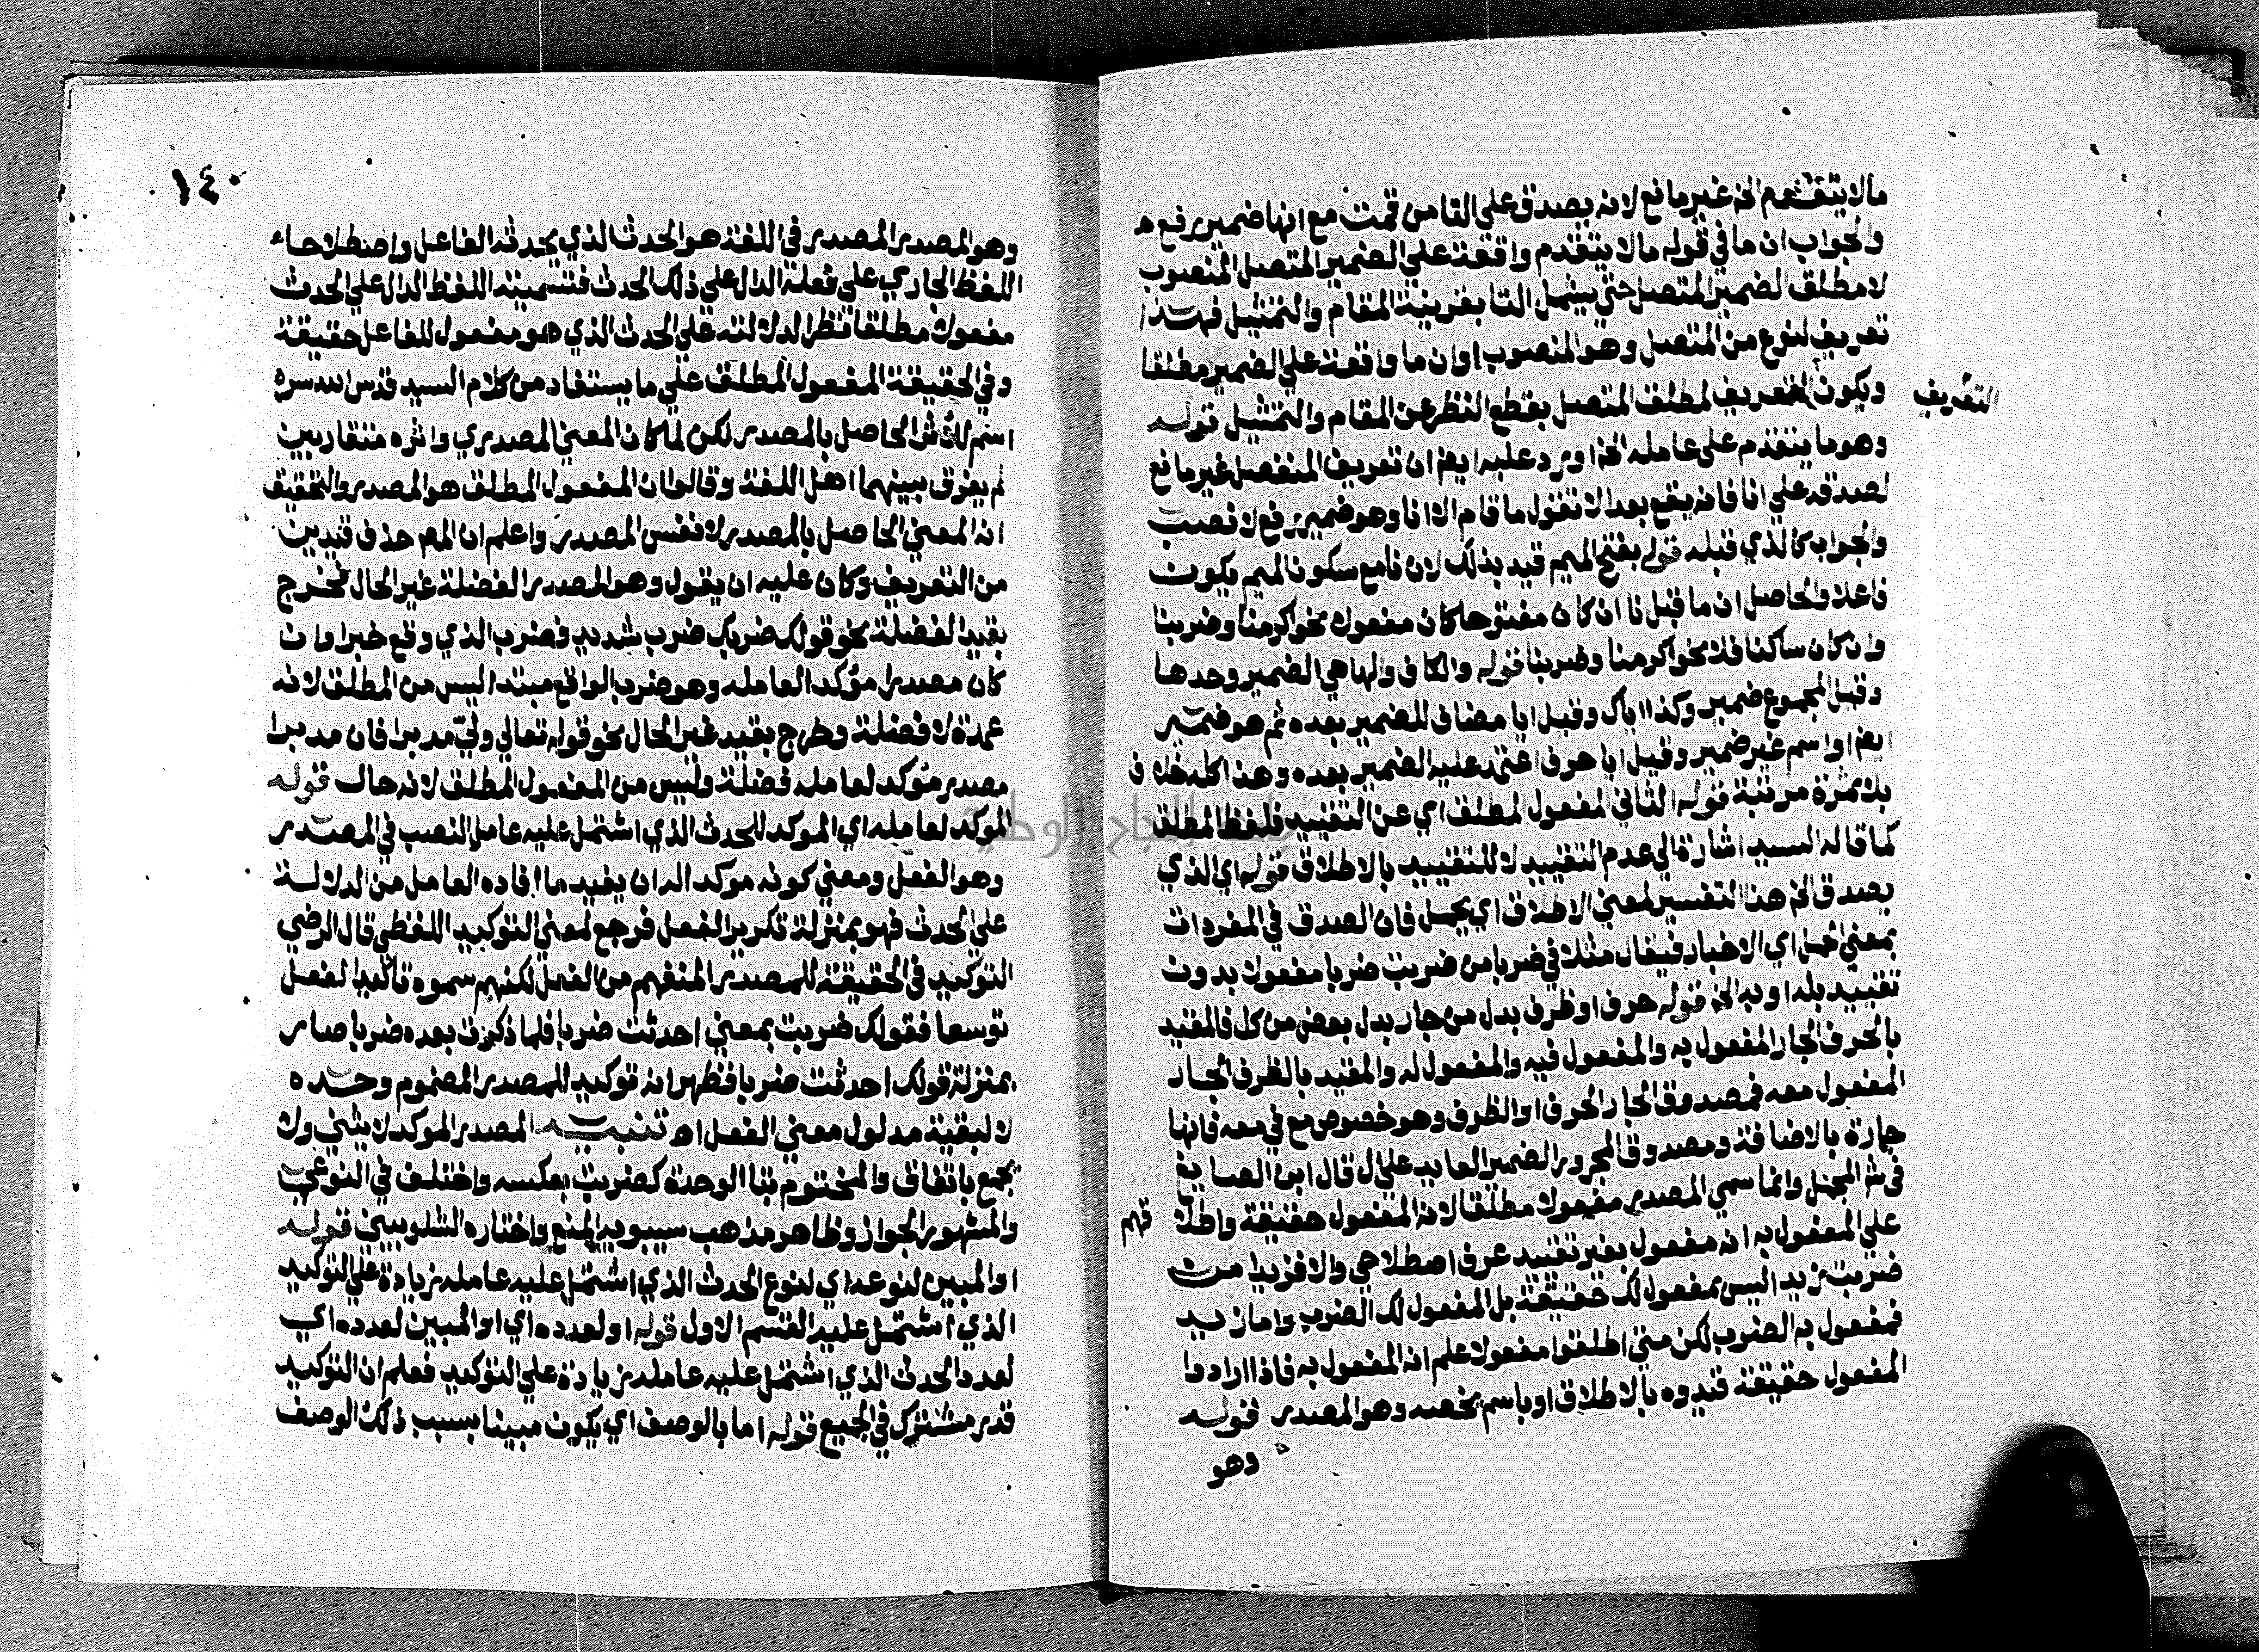 ما لا يتقدم الخ غير مانع لانه يصدق علي التا من قمت مع انها ضمير رفع ه
والجواب ان ما في قوله ما لا يتقدم واقعة علي الضمير المتصل المنصوب
لا مطلق الضمير المتصل حتي يشمل التا بقرينة المقام والتمثيل فهذا
تعريف لنوع من المتصل وهو المنصوب او ان ما واقعة علي الضمير مطلقا
ويكون التعريف لمطلق المتصل بقطع النظر عن المقام والتمثيل قوله
التعريف
وهو ما يتقدم علي عامله الخ اورد عليه ايض ان تعريف المنفصل غير مانع
لصدقه علي انا فانه يقع بعد الا تقول ما قام الا انا وهو ضمير رفع لا نصب
والجواب كالذي قبله قوله بفتح الميم قيد بذلك لان نا مع سكون الميم يكون
فاعلا والحاصل ان ما قبل نا ان كان مفتوحا كان مفعولا نحو اكرمنا وضربنا
وان كان ساكنا فلا نحو اكرمنا وضربنا قوله والكاف والها هي الضمير وحدها
وقيل المجموع ضمير وكذا اياك وقيل ايا مضاف للضمير بعده ثم هو ضمير
ايض او اسم غير ضمير وقيل ايا حرف اعتمد عليه الضمير بعده وهذا كله خلاف
بلا ثمرة مرتبة قوله الثاني المفعول المطلق اي عن التقييد فلفظ المطلق
كما قاله السيد اشارة الي عدم التقييد لا للتقييد بالاطلاق قوله اي الذي
يصدق الخ هذا التفسير لمعني الاطلاق اي يحمل فان الصدق في المفردات
بمعني الحمل اي الاخبار فيقال مثلا في ضربا من ضربت ضربا مفعول بدون
تقييد بله او به الخ قوله حرف او ظرف بدل من جار بدل بعض من كل فالمقيد
بالحرف الجار المفعول به والمفعول فيه والمفعول له والمقيد بالظرف الجار
المفعول معه فمصدوق الجار الحرف او الظرف وهو خصوص مع في معه فانها
جارة بالاضافة ومصدوق المجرور الضمير العايد علي ال قال ابن الصايغ
في شر الجمل وانما سمي المصدر مفعولا مطلقا لانه المفعول حقيقة واطلا قهم
علي المفعول به انه مفعول بغير تقييد عرف اصطلاحي والا فزيدا من
ضربت زيدا ليس بمفعول لك حقيقة بل المفعول لك الضرب واما زيد
فمفعول به الضرب لكن متي اطلقوا مفعولا علم انه المفعول به فاذا ارادوا
المفعول حقيقة قيدوه بالاطلاق او باسم يخصه وهو المصدر قوله
وهو
١٤٠
وهو المصدر المصدر في اللغة هو الحدث الذي يحدثه الفاعل واصطلاحا
اللفظ الجاري علي فعله الدال علي ذلك الحدث فتسمية اللفظ الدال علي الحدث
مفعولا مطلقا نظرا لدلالته علي الحدث الذي هو مفعول للفاعل حقيقة
وفي الحقيقة المفعول المطلق علي ما يستفاد من كلام السيد قدس الله سره
اسم للاثر الحاصل بالمصدر لكن لما كان المعني المصدري واثره متقاربين
لم يفرق بينهما اهل اللغة وقالوا ان المفعول المطلق هو المصدر والتحقيق
انه المعني الحاصل بالمصدر لا نفس المصدر واعلم ان المص حذف قيدين
من التعريف وكان عليه ان يقول وهو المصدر الفضلة غير الحال فخرج
بقيد الفضلة نحو قولك ضربك ضرب شديد فضرب الذي وقع خبرا وان
كان مصدرا مؤكدا لعامله وهو ضرب الواقع مبتدا ليس من المطلق لانه
عمدة لا فضلة وخرج بقيد غير الحال نحو قوله تعالي ولي مدبرا فان مدبرا
مصدر مؤكد لعامله فضلة وليس من المفعول المطلق لانه حال قوله
الموكد لعامله اي الموكد للحدث الذي اشتمل عليه عامل النصب في المصدر
وهو الفعل ومعني كونه موكدا له ان يفيد ما افاده العامل من الدلالة
علي الحدث فهو بمنزلة تكرير الفعل فرجع لمعني التوكيد اللفظي قال الرضي
التوكيد في الحقيقة للمصدر المنفهم من الفعل لكنهم سموه تاكيد الفعل
توسعا فقولك ضربت بمعني احدثت ضربا فلما ذكرت بعده ضربا صار
بمنزلة قولك احدثت ضربا فظهر انه توكيد للمصدر المضموم وحده
لا لبقية مدلول معني الفعل اه تنبيه المصدر الموكد لا يثني ولا
يجمع باتفاق والمختوم بتا الوحدة كضربة بعكسه واختلف في النوعي
والمشهور الجواز وظاهر مذهب سيبويه المنع واختاره الشلوبين قوله
او المبين لنوعه اي لنوع الحدث الذي اشتمل عليه عامله زيادة علي التوكيد
الذي اشتمل عليه القسم الاول قوله او لعدده اي او المبين لعدده اي
لعدد الحدث الذي اشتمل عليه عامله زيادة علي التوكيد فعلم ان التوكيد
قدر مشترك في الجميع قوله اما بالوصف اي يكون مبينا بسبب ذلك الوصف